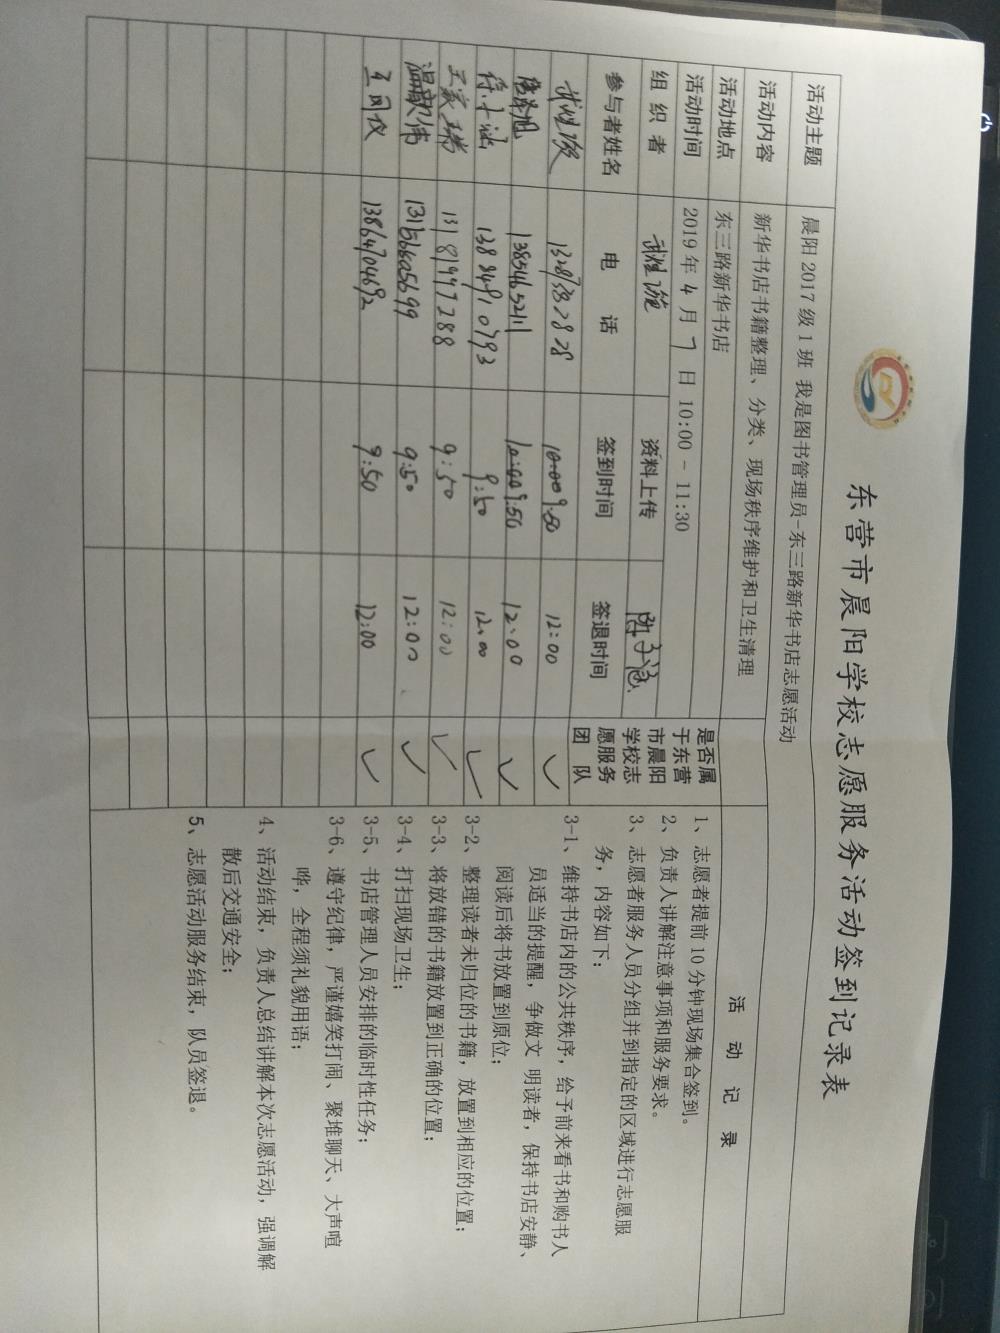 东营市晨阳学校志愿服务活动签到记录表
活动主题 晨阳 2017 级 1 班 我是图书管理员-东三路新华书店志愿活动
活动内容 新华书店书籍整理、分类、现场秩序维护和卫生清理
活动地点 东三路新华书店
活动时间 2019 年 4 月 7 日 10:00 - 11:30
组 织 者 资料上传
参与者姓名 电 话 签到时间 签退时间 是否属于东营市晨阳学校志愿服务团 队
10:00 9:50 12:00 ✓
13854652111 10:00 9:50 12:00 ✓
9:50 12:00 ✓
王家瑞 13181997288 9:50 12:00 ✓
温歆伟 13156605699 9:50 12:00 ✓
王同仪 13864704692 9:50 12:00 ✓
活 动 记 录
1、志愿者提前 10 分钟现场集合签到。
2、负责人讲解注意事项和服务要求。
3、志愿者服务人员分组并到指定的区域进行志愿服
务，内容如下：
3-1、维持书店内的公共秩序，给予前来看书和购书人
员适当的提醒，争做文 明读者，保持书店安静、
阅读后将书放置到原位；
3-2、整理读者未归位的书籍，放置到相应的位置；
3-3、将放错的书籍放置到正确的位置；
3-4、打扫现场卫生；
3-5、书店管理人员安排的临时性任务；
3-6、遵守纪律，严谨嬉笑打闹、聚堆聊天、大声喧
哗，全程须礼貌用语；
4、活动结束，负责人总结讲解本次志愿活动，强调解
散后交通安全；
5、志愿活动服务结束，队员签退。